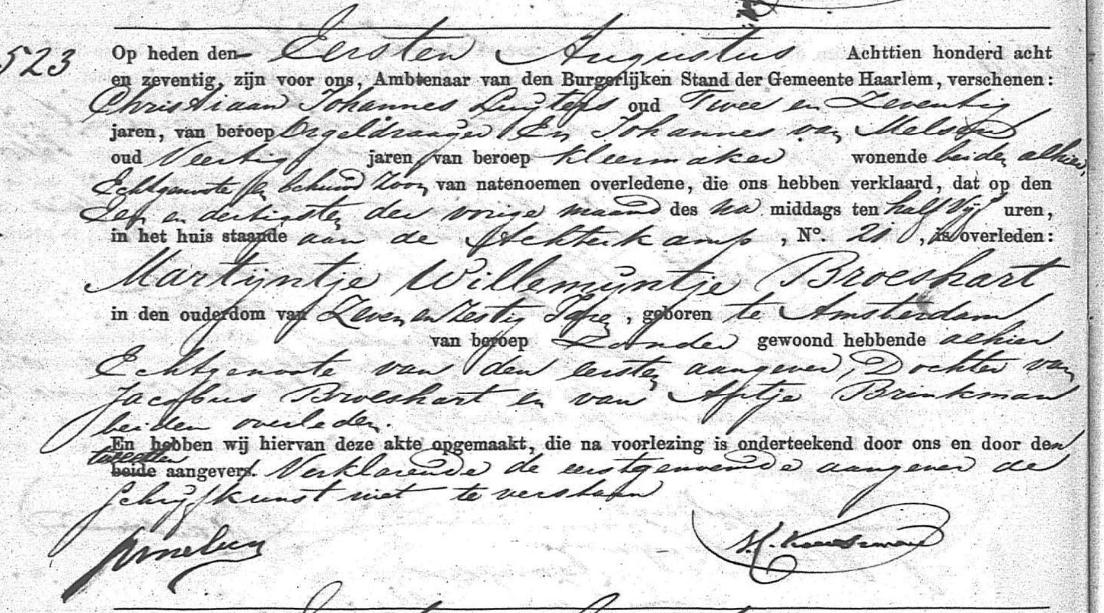 523
Op heden den Eersten Augustus Achttien honderd acht
en zeventig, zijn voor ons, Ambtenaar van den Burgerlijken Stand der Gemeente Haarlem, verschenen:
Christiaan Johannes Luijters oud Twee en Zeventig
jaren, van beroep Orgeldraaijer En Johannes van Melsen
oud Veertig jaren, van beroep Kleermaker wonende beiden alhier,
Echtgenoote en behuwd Zoon van natenoemen overledene, die ons hebben verklaard, dat op den
Een en dertigsten der vorige maand des na middags ten half Vijf uren,
in het huis staande aan de Achterkamp, N°. 21, is overleden:
Martijntje Willemijntje Broeshart
in den ouderdom van Zeven en Zestig Jare, geboren te Amsterdam
van beroep Zonder gewoond hebbende alhier
Echtgenoote van den eersten aangever, Dochter van
Jacobus Broeshart en van Aptje Brinkman
beiden overleden.
En hebben wij hiervan deze akte opgemaakt, die na voorlezing is onderteekend door ons en door den
tweeden
beide aangevers. Verklarende de eerstgenoemde aangever de
Schrijfkunst niet te verstaan